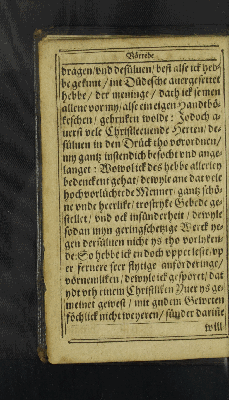 Vörrede
dragen/vnd desüluen/ best alse ick heb-
be gekunt / int Düdesche auergesettet
hebbe / der meninge / dath ick se men
allene vor my/ alse ein eigen Handtbö-
keschen/ gebruken wolde: Jedoch a-
uerst vele Christleuende Herten/ de-
süluen in den Drück tho vorordnen/
my gantz instendich besocht vnd ange-
langet: Wowol ick des hebbe allerley
bedenckent gehat/ dewyle ane dat vele
hochvorlüchtede Menner/ gantz schö-
ne vnde heerlike/ trostryke Gebede ge-
stellet/ vnd ock insünderheit / dewyle
sodan myn geringschetzige Werck ye-
gen dersüluen nicht ys tho vorlyken-
de: So hebbe ick en doch vpper lest/ vp
er fernere seer flytige anforderinge/
vörnemliken/ dewyle ick gespöret/ dat
ydt vth einem Christliken Yuer ys ge-
meinet gewest / mit gudem Geweten
föchlick nicht weyeren/ sünder darüue
will